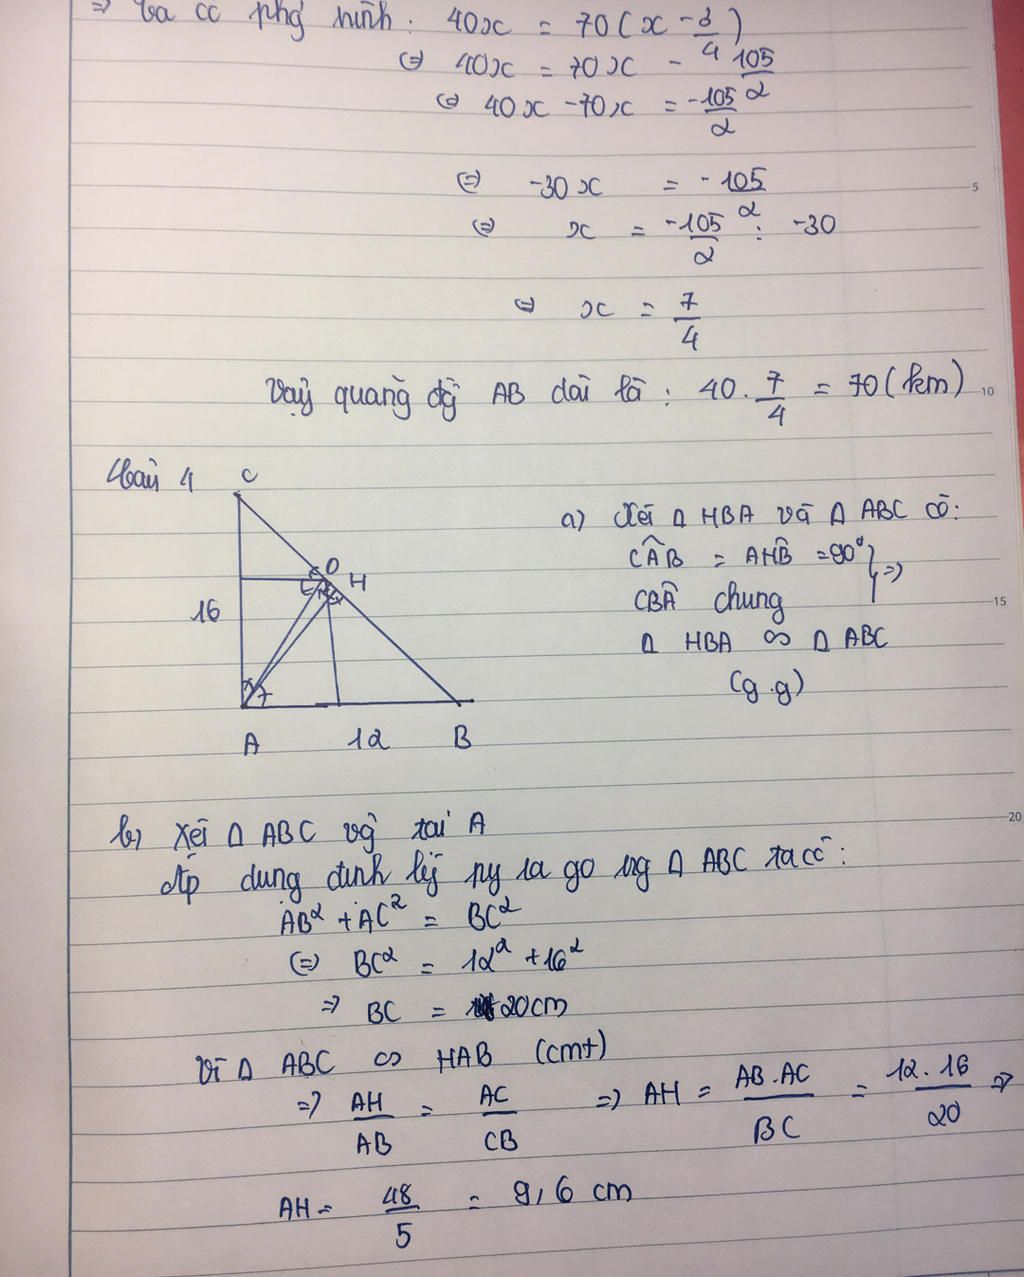 => ta có phg hình : 40x = 70(x - 3/4)
(=) 40x = 70x - 105/2
(=) 40x - 70x = -105/2
(=) -30x = -105/2
(=) x = -105/2 : -30
(=) x = 7/4
Vậy quãng đg AB dài là : 40 . 7/4 = 70 (km)
Bài 4
C
O
H
16
A 12 B
a) Xét Δ HBA và Δ ABC có:
CÂB = AHB = 90° } =>
CBA chung
Δ HBA ∽ Δ ABC
(g.g)
b) Xét Δ ABC vg tại A
Áp dụng định lý py ta go vg Δ ABC ta có :
AB² + AC² = BC²
(=) BC² = 12² + 16²
=> BC = 20cm
Vì Δ ABC ∽ HAB (cmt)
=> AH/AB = AC/CB => AH = AB.AC/BC = 12.16/20 =>
AH = 48/5 = 9,6 cm
5
10
15
20